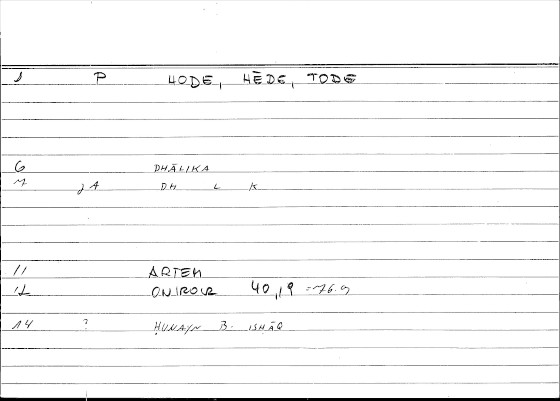 1 P HODE, HĒDE, TODE
6 DHĀLIKA
7 jA DH L K
11 ARTEM
12 ONIROCR 40,19 = 76.9
14 ? ḤUNAYN B. ISḤĀQ